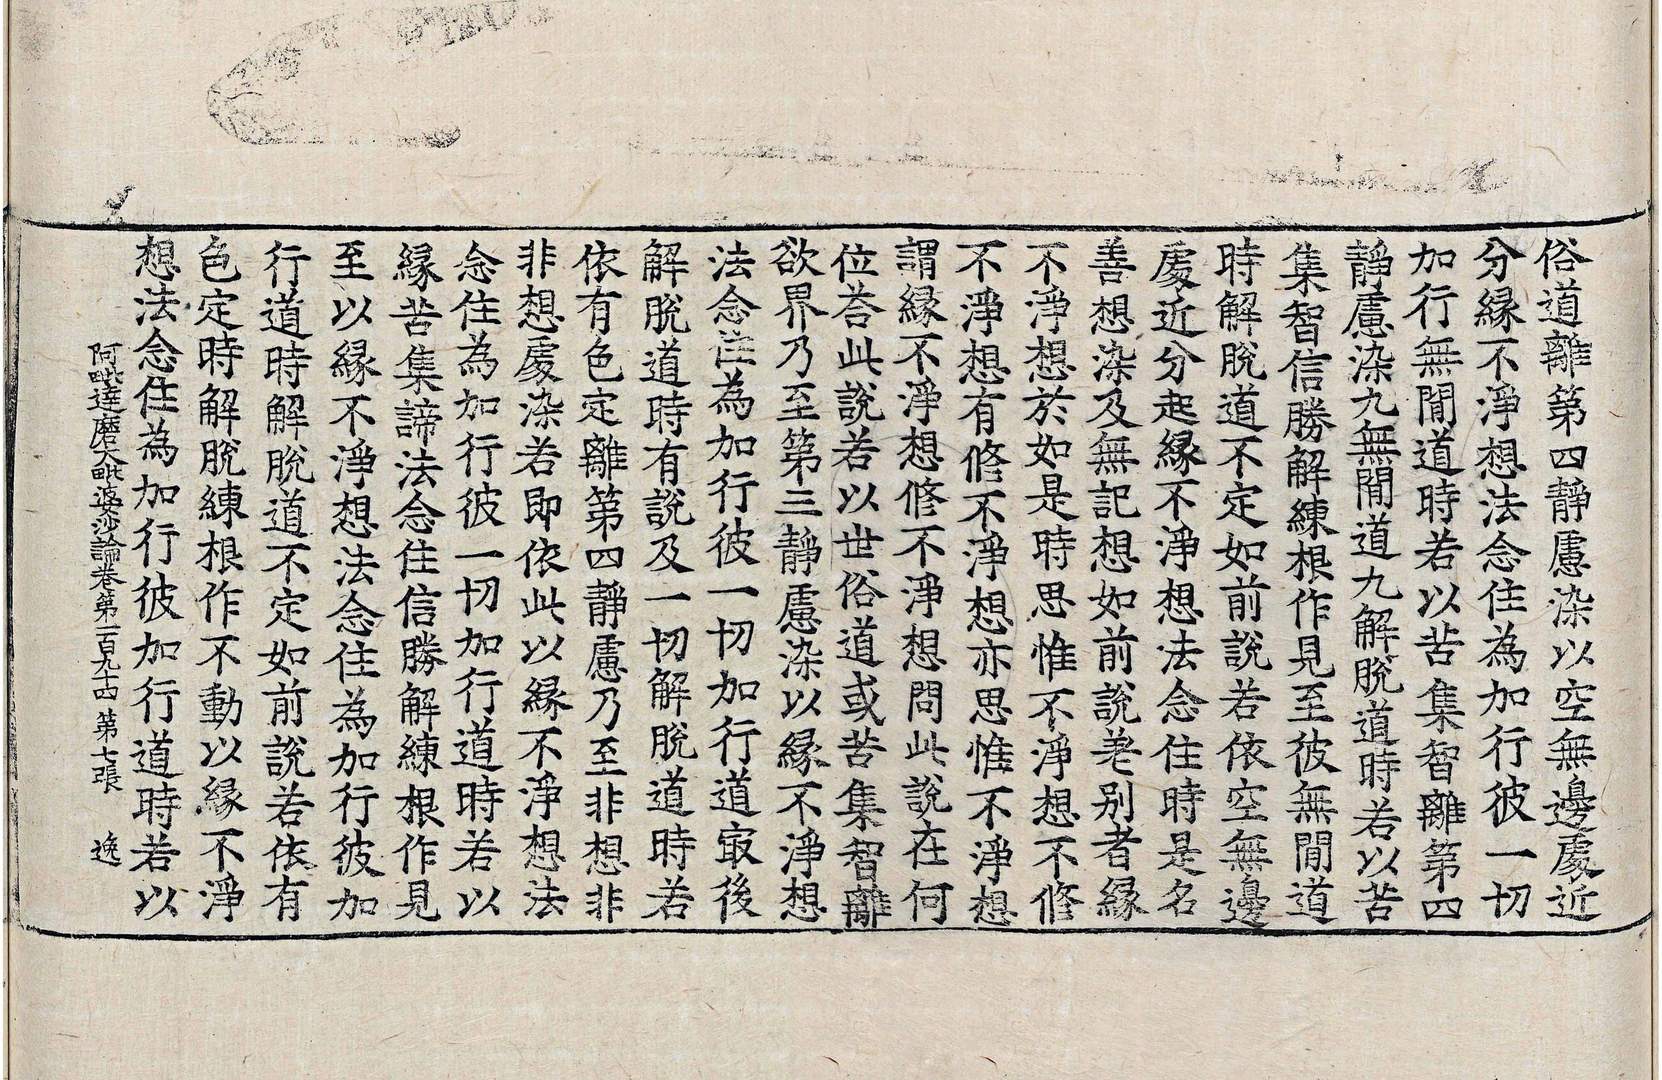 俗道離第四靜慮染以空無邊處近
分緣不淨想法念住為加行彼一切
加行無閒道時若以苦集智離第四
靜慮染九無閒道九解脫道時若以苦
集智信勝解練根作見至彼無閒道
時解脫道不定如前說若依空無邊
處近分起緣不淨想法念住時是名
善想染及無記想如前說差別者緣
不淨想於如是時思惟不淨想不修
不淨想有修不淨想亦思惟不淨想
謂緣不淨想修不淨想問此說在何
位荅此說若以世俗道或苦集智離
欲界乃至第三靜慮染以緣不淨想
法念住為加行彼一切加行道㝡後
解脫道時有說及一切解脫道時若
依有色定離第四靜慮乃至非想非
非想處染若即依此以緣不淨想法
念住為加行彼一切加行道時若以
緣苦集諦法念住信勝解練根作見
至以緣不淨想法念住為加行彼加
行道時解脫道不定如前說若依有
色定時解脫練根作不動以緣不淨
想法念住為加行彼加行道時若以
阿毗達磨大毗婆沙論卷第一百九十四 第七張 逸